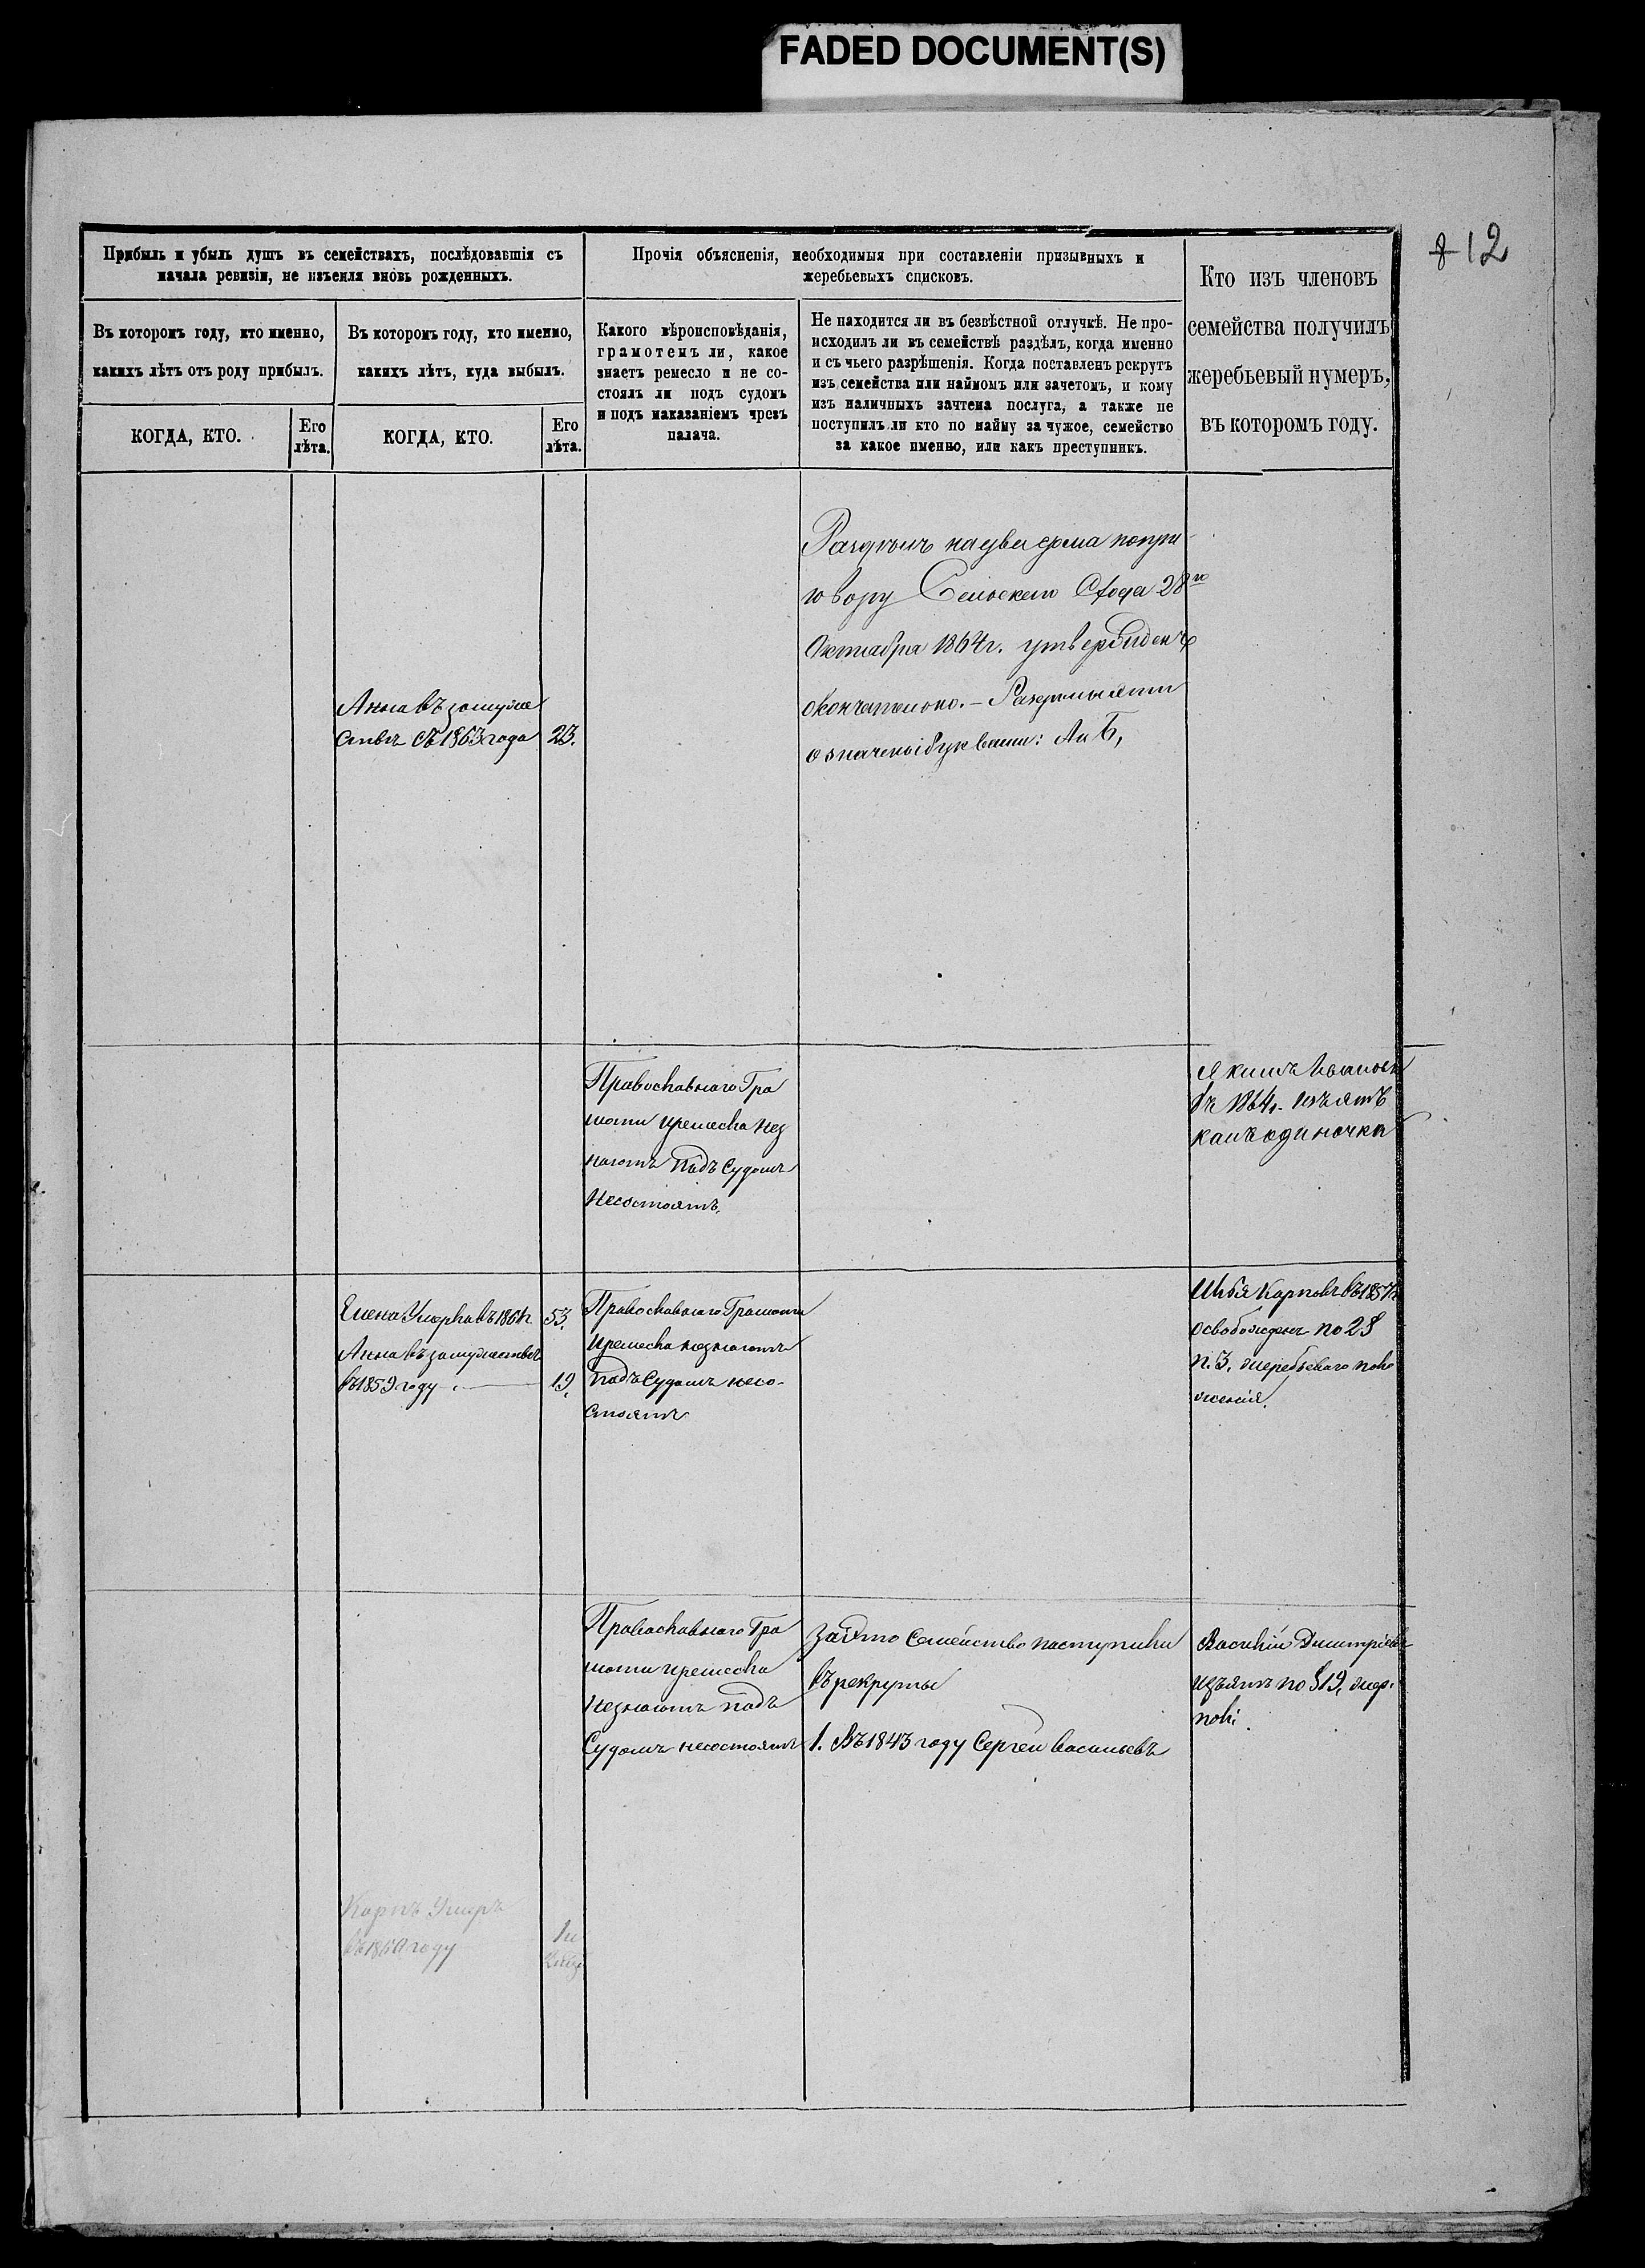 FADED DOCUMENT(S)
8 12
Прибыль и убыль душъ въ семействахъ, послѣдовавшія съ
начала ревизіи, не изъемля вновь рожденныхъ.
Въ которомъ году, кто именно,
какихъ лѣтъ отъ роду прибылъ.
КОГДА, КТО.
Его
лѣта.
Въ которомъ году, кто именно,
какихъ лѣтъ, куда выбылъ.
КОГДА, КТО.
Его
лѣта.
Прочія объясненія, необходимыя при составленіи призывныхъ и
жеребьевыхъ списковъ.
Какого вѣроисповѣданія,
грамотенъ ли, какое
знаетъ ремесло и не со-
стоялъ ли подъ судомъ
и подъ наказаніемъ чрезъ
палача.
Не находится ли въ безвѣстной отлучкѣ. Не про-
исходилъ ли въ семействѣ раздѣлъ, когда именно
и съ чьего разрѣшенія. Когда поставленъ рекрутъ
изъ семейства или наймомъ или зачетомъ, и кому
изъ наличныхъ зачтена послуга, а также не
поступилъ ли кто по найму за чужое, семейство
за какое именно, или какъ преступникъ.
Кто изъ членовъ
семейства получилъ
жеребьевый нумеръ,
въ которомъ году.
Анна въ замуже
ствѣ съ 1863 года 23.
Раздѣлъ на два дома по при-
говору Сельскаго Схода 28го
Октября 1864г. утвержденъ
окончательно. –
означены буквами: А и Б,
Православнаго Гра
моты и ремесла нез
наютъ подъ Судомъ
Несостоятъ.
Якимъ Ивановъ
въ 1864г. изъятъ
какъ одиночка
Елена Умерла въ 1864г. 53.
Анна въ замужествѣ
въ 1859 году 19.
Православнаго Грамоты
и ремесла незнаютъ
подъ Судомъ несо-
стоятъ
Илья Карповъ въ 1857г.
освобожденъ по 28
п. 3. жеребьеваго поло
женія.
Православнаго Гра
моты и ремесла
Незнаютъ подъ
Судомъ несостоятъ
За это Семейство поступили
въ рекруты
1. Въ 1843 году Сергей Васильевъ
Василій Дмитріевъ
изъятъ по §19, жер.
пол:
Карпъ Умеръ
въ году